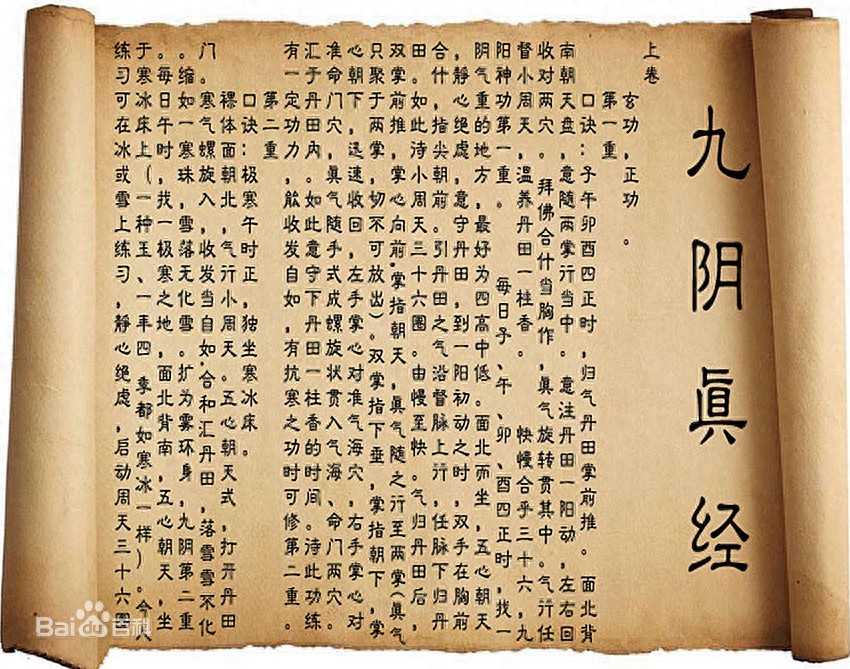 九阴眞经
上卷
玄功,正功。
第一重
口诀:子午卯酉四正时,归气丹田掌前推。 面北背
南朝天盘,意随两掌行当中。意注丹田一阳动,左右回
收对两穴。 拜佛合什当胸作,眞气旋转贯其中。气行任
督小周天,温养丹田一柱香。 快慢合乎三十六,九
阳神功第一重。 每日子、午、卯、酉四正时,找一
阴气重的地方,最好为四高中低。面北而坐,五心朝天
,静心绝虑,意守丹田,到一阳初动之时,双手在胸前
合什,指尖朝前。引丹田之气沿督脉上行,任脉下归丹
田。如此待小周天三十六圈。由慢至快。气归丹田后,
双掌前推,掌心向前,掌指朝天,眞气随之行至两掌(眞气
只聚于两掌,切不可放出)。双掌指下垂,掌指朝下,掌
心朝下,迅速收回,左手掌心对准气海穴,右手掌心对
准命门穴,眞气随手式成螺旋状贯入气海、命门两穴。
汇于丹田內。如此意守下丹田一柱香的时间。待此功练
有一定功力,能收发自如,有抗寒之功时可修第二重。
第二重
口诀:极寒午时正,独坐寒冰床。
裸体面朝北,气行小周天。五心朝天式,打开丹田
门。寒气螺旋入,收发当自如,合和汇丹田,落雪雪不化
。缩如一寒珠,雪落无化雪。扩为雾环身,九阴第二重
。每日午时,找一极寒之地,面北背南,五心朝天,坐
于寒冰床上(一种玉、一年四季都如寒冰一样)。今人
练习可在冰或雪上练习,静心绝虑,启动周天三十六圈
Bai百科